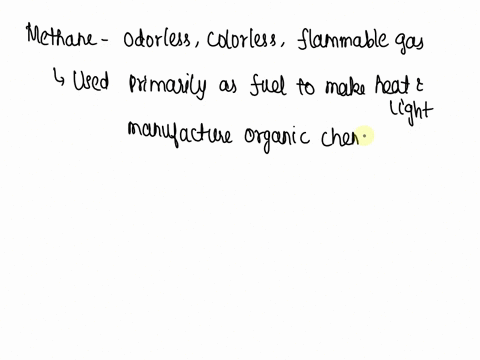 Methane - odorless, colorless, flammable gas
↳ Used primarily as fuel to make heat &
light
manufacture organic chem